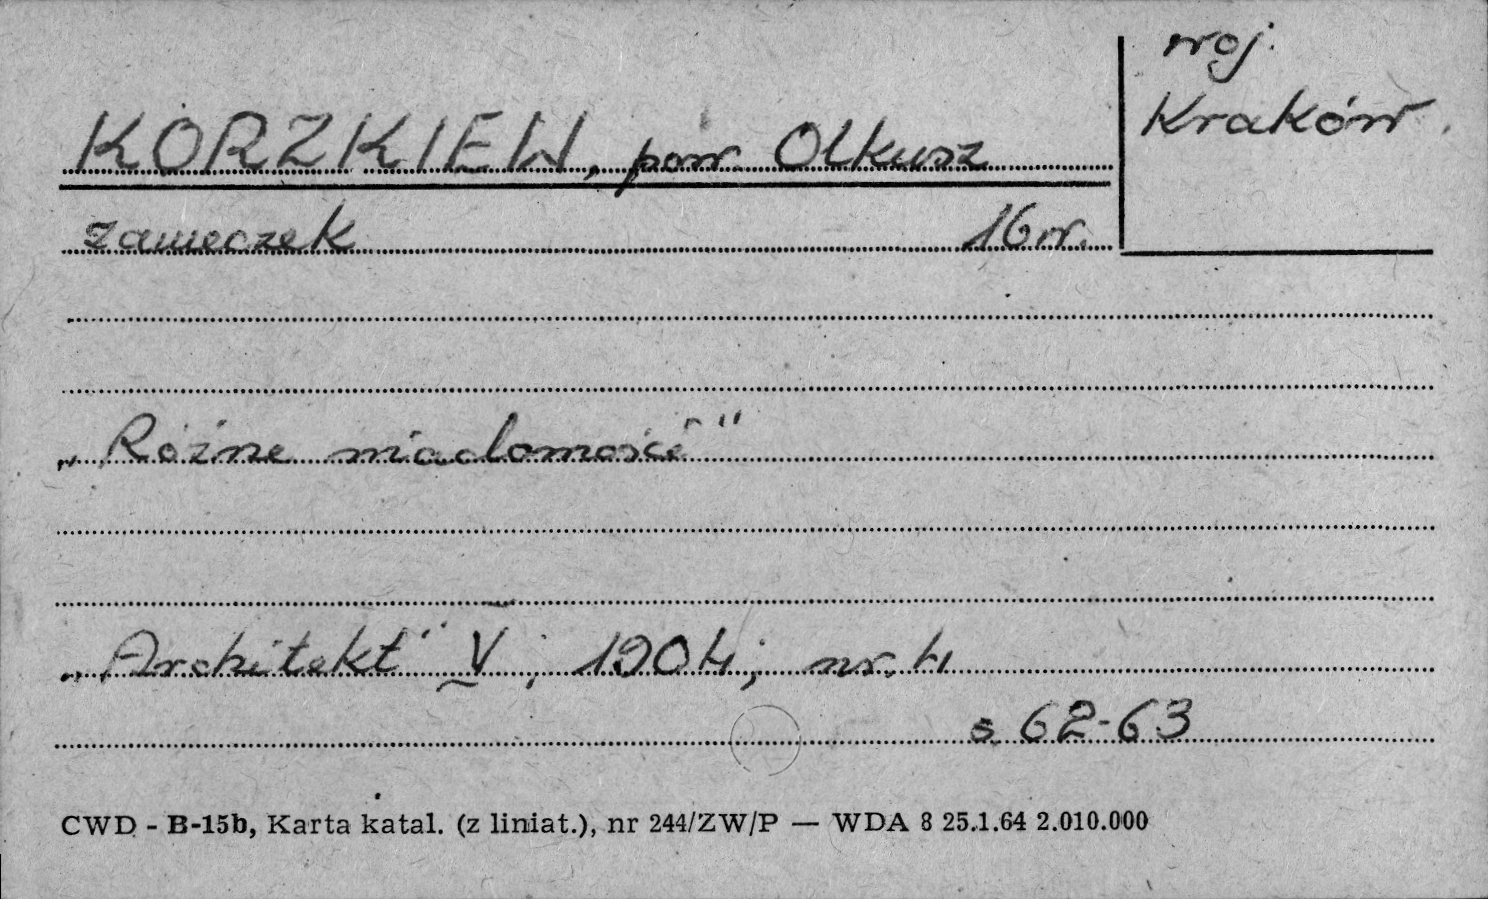 woj.
Kraków
KORZKIEW, pow. Olkusz
zameczek 16 w.
„Różne wiadomości"
„Architekt" V; 1904; nr. 4
s 62-63
CWD - B-15b, Karta katal. (z liniat.), nr 244/ZW/P — WDA 8 25.1.64 2.010.000